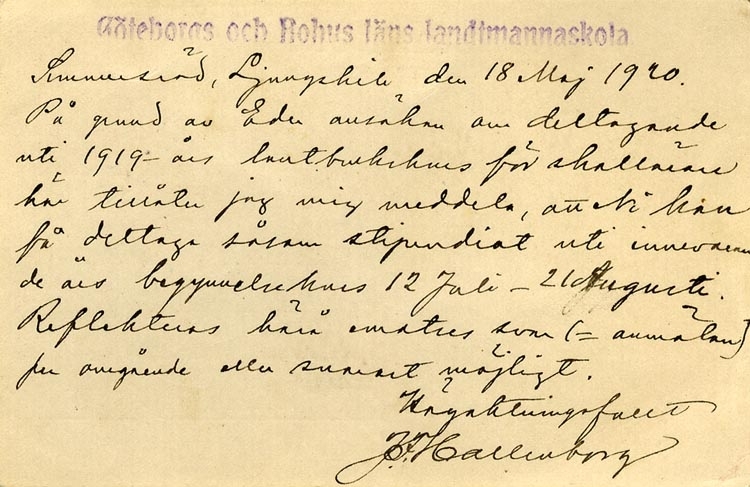 Göteborgs och Bohus läns landtmannaskola
Simmersröd, Ljungskile den 18 Maj 1920.
På grund av Eder ansökan om deltagande
uti 1919 – års lantbrukskurs för skollärare
här tillåter jag mig meddela, att Ni kan
få deltaga såsom stipendiat uti innevaran
de års begynnelsekurs 12 Juli – 21 Augusti.
Reflekteras härå emotses svar (= anmälan)
per omgående eller snarast möjligt.
Högaktningsfullt
J. Hallenborg